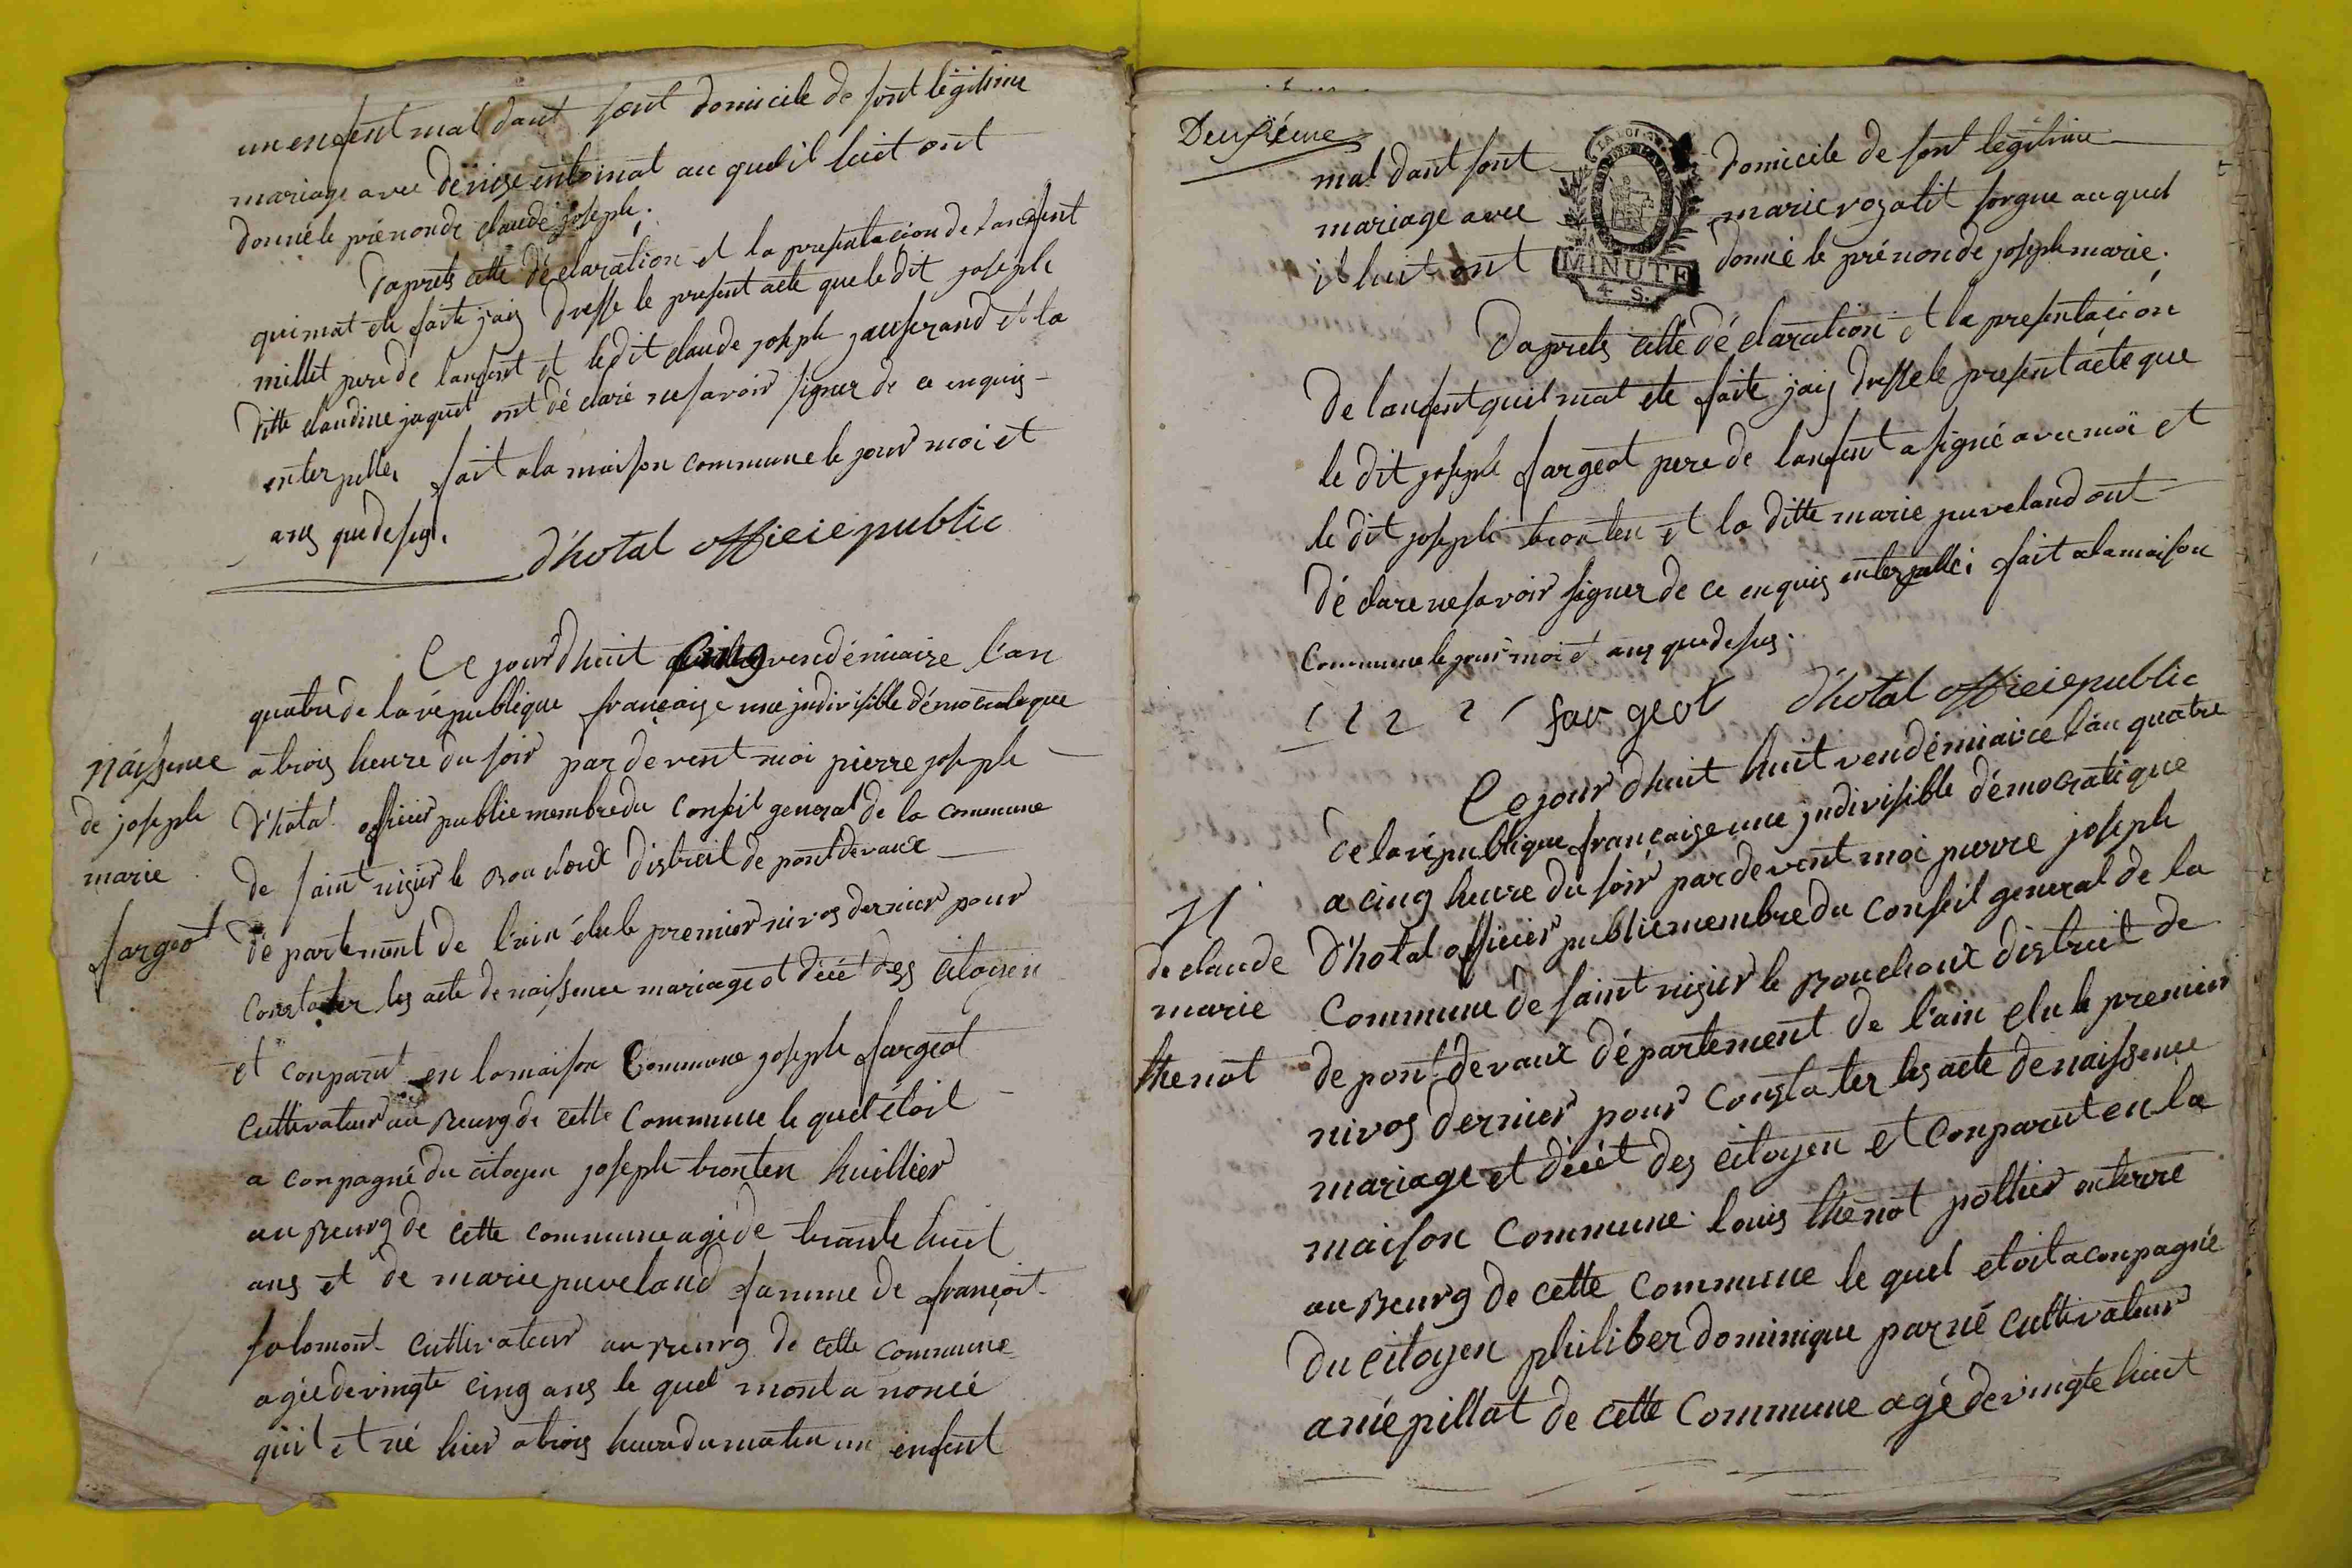 un enfent mal dant sont domicile de sont legitime
mariage avec denise intoinat au quel il luit ont
donné le prénon de claude joseph.
d'aprets cette déclaration et la presentacion de lanfent
qui mat ete faite jaiz dresse le present acte que le dit joseph
millet pere de lanfent et le dit claude joseph jauserand et la
ditte claudine jaquet ont déclaré ne savoir signer de ce enquis
enterpelles fait a la maison commune le jour moi et
ans que desus.
d'hotal officié public
Ce jourd'huit cinq vendémiaire l'an
quatre de la république française une jndivisible démocratique
Naissence
a trois heure du soir par devent moi pierre joseph
de joseph
d'hotal officier public membre du conseil general de la commune
marie
de saint nizier le Bouchoux distreit de pont de vaux
fargeot
département de l'ain élu le premier nivos dernier pour
constater les acte de naissence mariage et décét des citoyen
et conparut en la maison Commune joseph fargeot
cultivateur au Beurg de cette Commune le quel étoit
aconpagné du citoyen joseph tronten huillier
au Beurg de cette commune agé de trante huit
ans et de marie puveland famme de françoit
solomont cultivateur au Beurg de cette commune
agée de vingte cinq ans le quel mont anoncé
quil et né hier a trois heure du matin un enfent
Deusiéme
mal dant sont domicile de sont legitime
mariage avec marie rozalit sorgue au quel
il luit ont donné le prénon de joseph marie.
LA LOI
MINUTE
4 S.
D'aprets cette déclaration et la presentacion
de lanfent quil mat ete faite jaiz dresse le present acte que
le dit joseph fargeot pere de lanfent a signé avec moi et
le dit joseph tronten et la ditte marie puveland ont
déclare ne savoir signer de ce enquis enterpellé fait a la maison
Commune le jour moi et ans que desus.
fargeot d'hotal officié public
Ce jour d'huit huit vendémiaire l'an quatre
de la république française une jndivisible démocratique
a cinq heure du soir par devent moi pierre joseph
N
d'hotal officier public membre du conseil general de la
de claude
Commune de saint nizier le Bouchoux distreit de
marie
thenot
de pont de vaux département de l'ain elu le premier
nivos dernier pour constater les acte de naissence
mariage et décét des citoyen et conparut en la
maison Commune louis thenot pottier en terre
au Beurg de cette Commune le quel etoit aconpagné
du citoyen philiber dominique parné cultivateur
a mépillat de cette Commune agé de vingte huit